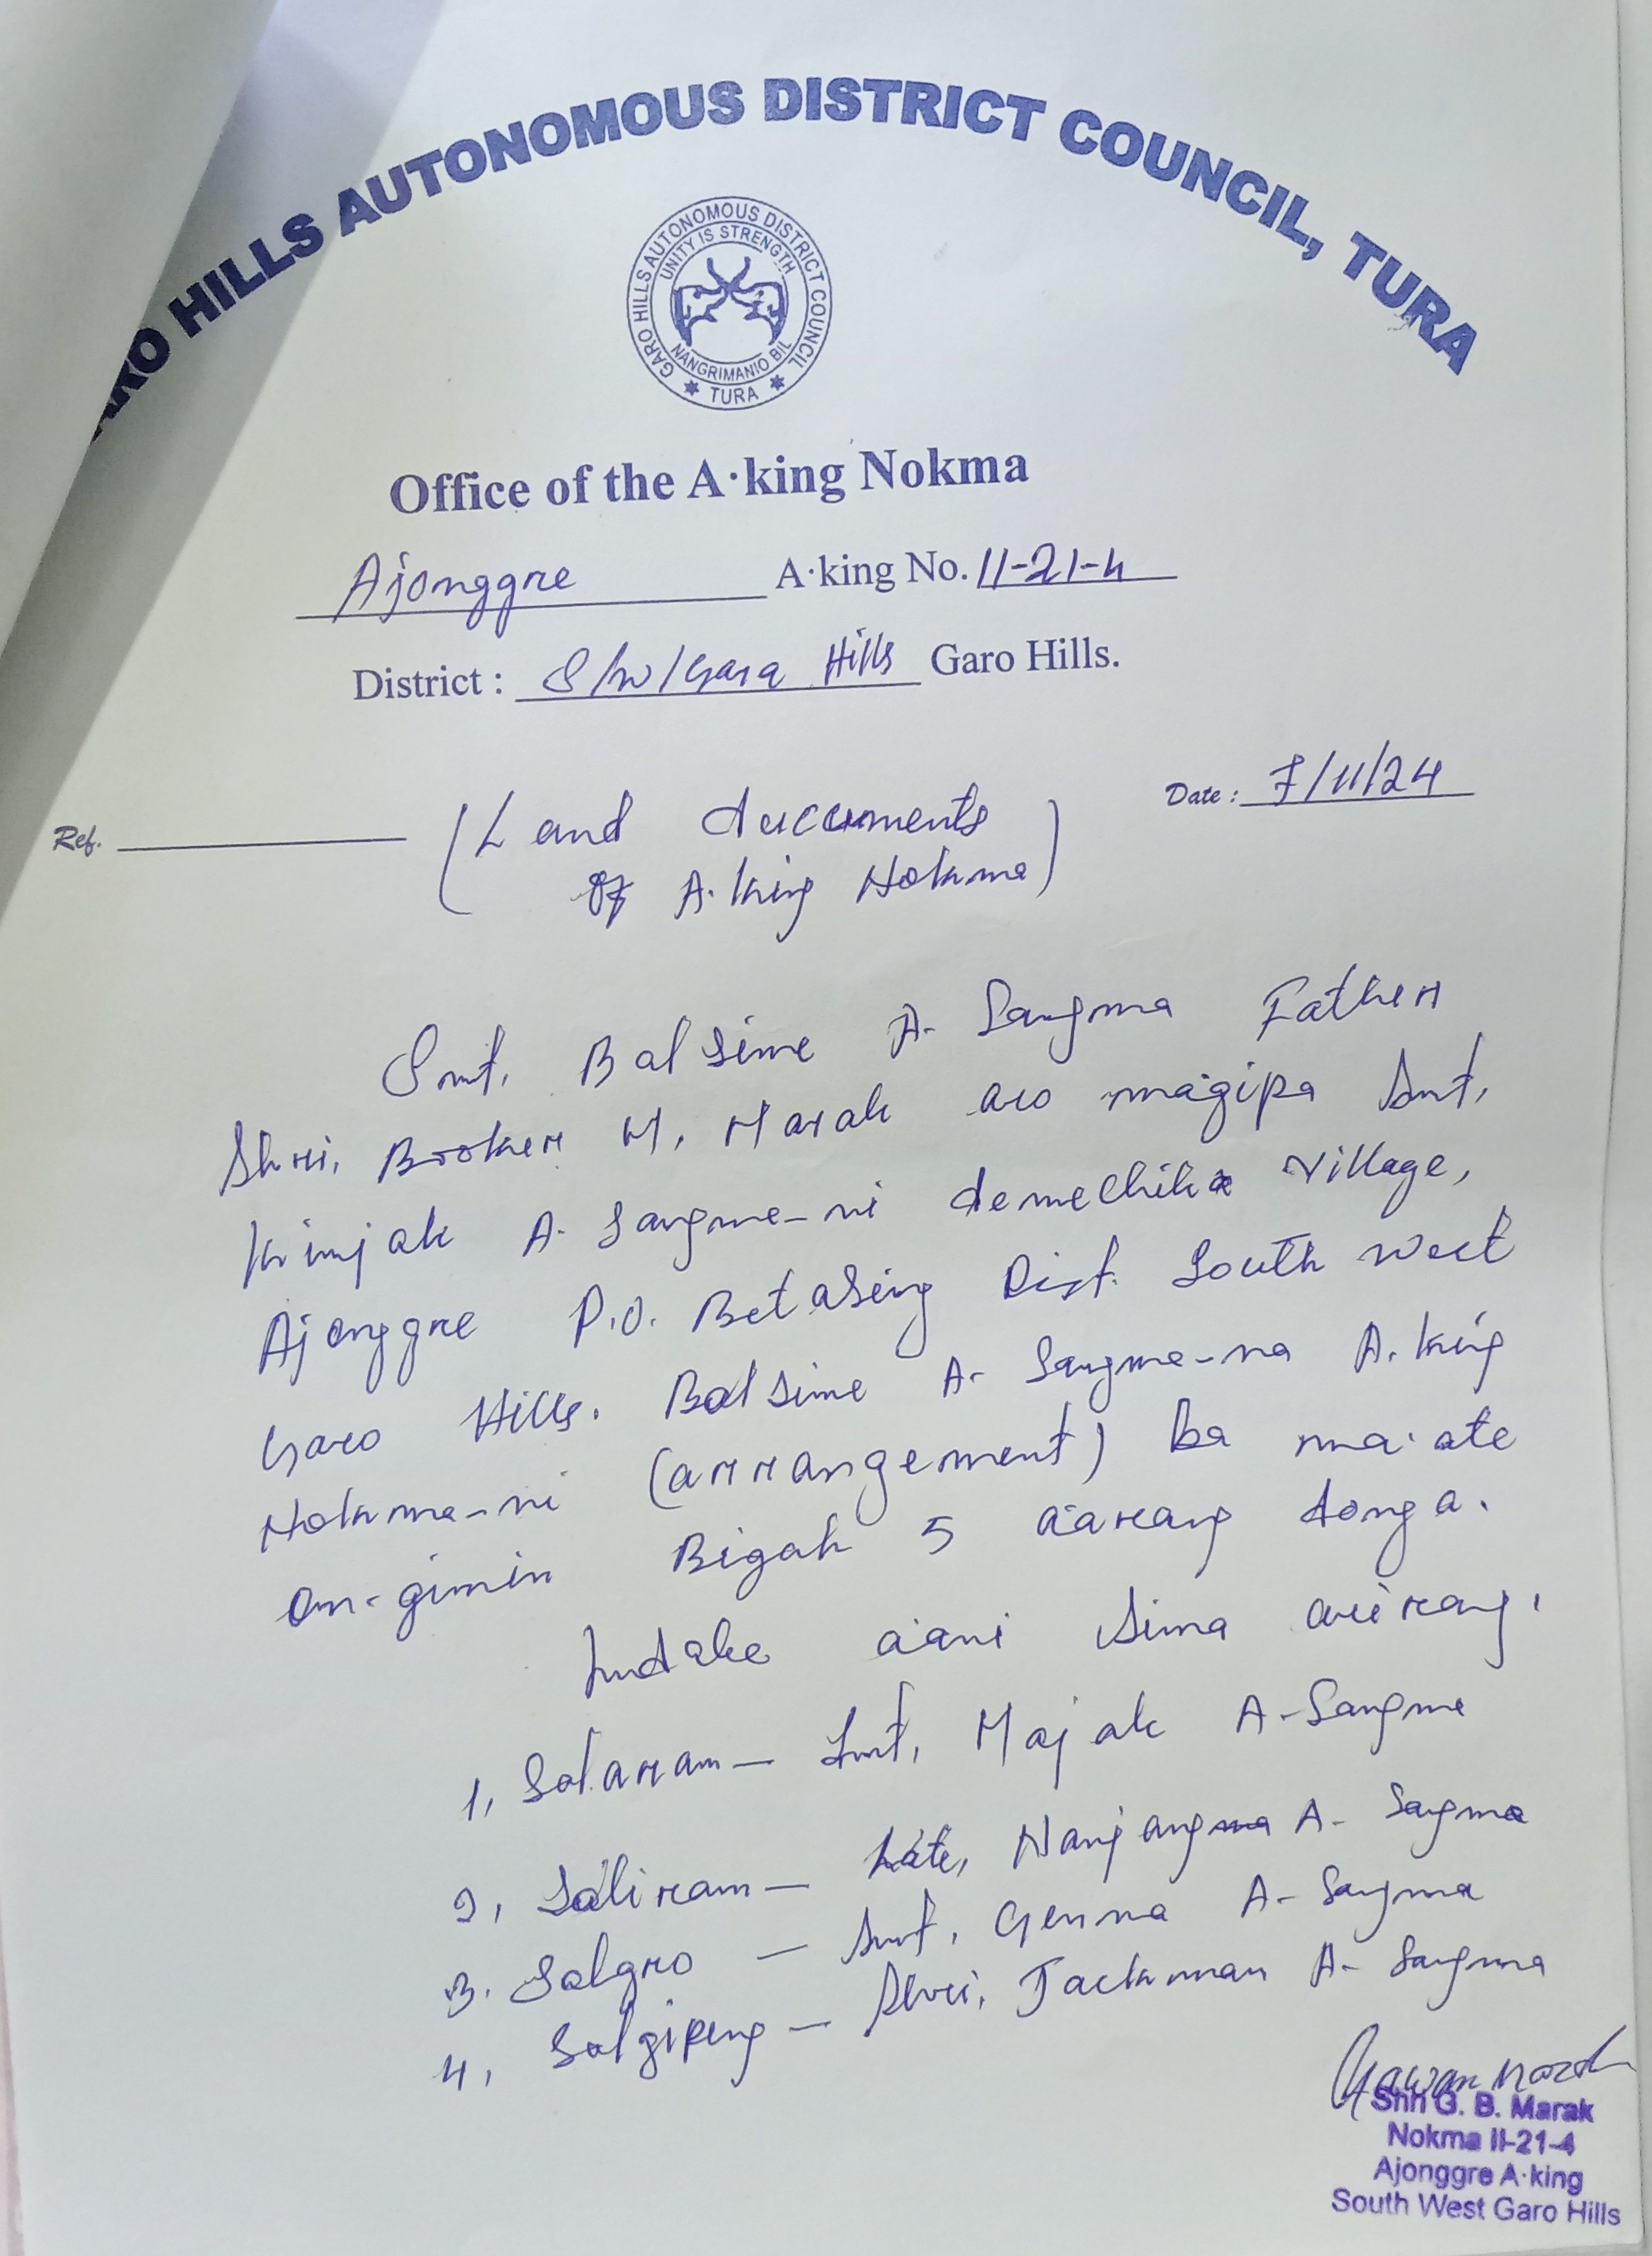 GARO HILLS AUTONOMOUS DISTRICT COUNCIL, TURA
GARO HILLS AUTONOMOUS DISTRICT COUNCIL
UNITY IS STRENGTH
NANGRIMANIO BIL
TURA
Office of the A·king Nokma
Ajonggre A·king No. II-21-4
District : S/W/Garo Hills Garo Hills.
Date : 7/11/24
Ref.
(Land duccuments
of A·king Nokma)
Smt. Balsime A- Sangma Father
Shri. Broken M. Marak aro ma·gipa Smt,
Kimjak A- Sangma-ni demechika village,
Ajonggre P.O. Betasing Dist. South West
Garo Hills. Balsime A- Sangma-na A·king
Nokma-ni (arrangement) ka ma·ate
on·gimin Bigah 5 a·arang donga.
Indake a·ani sima arirang,
1, Salaram - Smt, Majak A-Sangma
2, Saliram - Late, Nanjang A- Sangma
3. Salgro - Smt, Genna A- Sangma
4, Salgipeng - Shri, Jackman A- Sangma
Shri G. B. Marak
Nokma II-21-4
Ajonggre A·king
South West Garo Hills